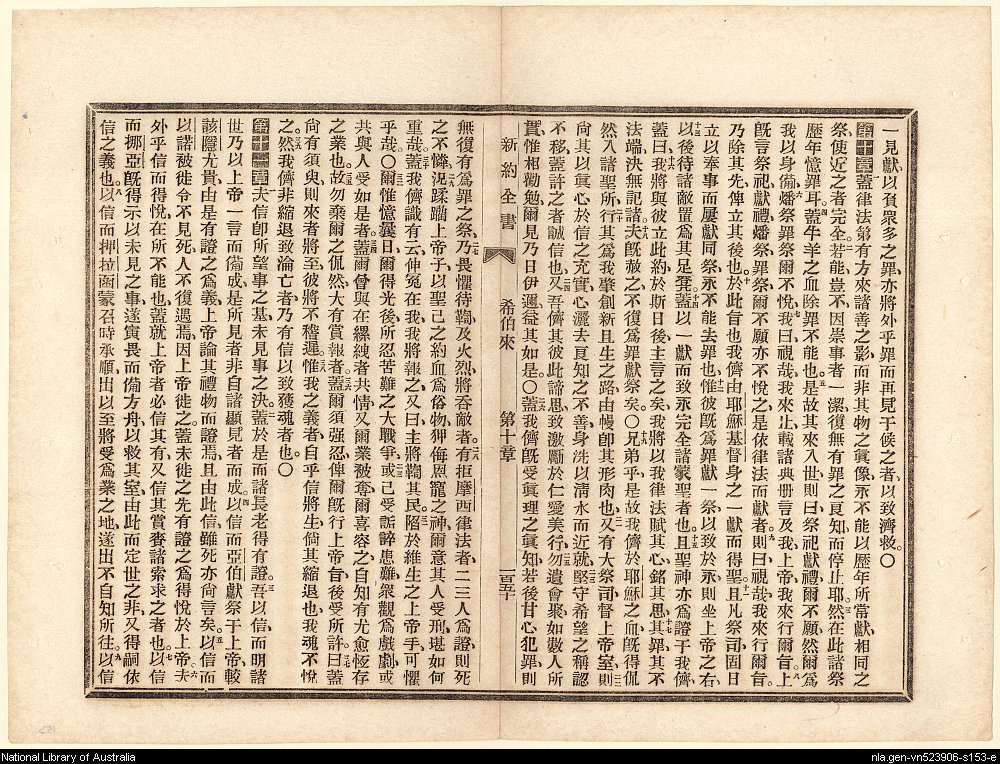 一見獻以負衆多之罪亦將外乎罪而再見于候之者以致濟救〇
第十章蓋律法第有方來諸善之影而非其物之眞像永不能以歷年所常獻相同之
祭使近之者完全若能豈不因崇事者一潔復無有罪之良知而停止耶然在此諸祭
歷年憶罪耳蓋牛羊之血除罪不能也是故其來入世則曰祭祀獻禮爾不願然爾爲
我以身備燔祭罪祭爾不悅我曰視哉我來上載諸典册言及我上帝我來行爾旨上
旣言祭祀獻禮燔祭罪祭爾不願亦不悅之是依律法而獻者則曰視哉我來行爾旨
乃除其先俾立其後也於此旨也我儕由耶穌基督身之一獻而得聖且凡祭司固日
立以奉事而屢獻同祭永不能去罪也惟彼旣爲罪獻一祭以致於永則坐上帝之右
以後待諸敵置爲其足凳蓋以一獻而致永完全諸蒙聖者也且聖神亦爲證于我儕
蓋曰我將與彼立此約於斯日後主言之矣我將以我律法賦其心銘其思其罪其不
法端決無記諸夫旣赦之不復爲罪獻祭矣〇兄弟乎是故我儕於耶穌之血旣得侃
然入諸聖所行其爲我肇創新且生之路由幔卽其形肉也又有大祭司督上帝室則
尙其以眞心於信之充實心灑去良知之不善身洗以淸水而近就堅守希望之稱認
不移蓋許之者誠信也又吾儕其彼此諦思致激勵於仁愛美行勿遺會聚如數人所
貫惟相勸勉爾見乃日伊邇益其如是〇蓋我儕旣受眞理之眞知若後甘心犯罪則
新約全書 希伯來 第十章 一百五十
無復有爲罪之祭乃畏懼待鞫及火烈將吞敵者有拒摩西律法者二三人爲證則死
之不憐況蹂躪上帝子以聖己之約血爲俗物狎侮恩寵之神爾意其人受刑堪如何
重哉蓋我儕識有云伸冤在我我將報之又曰主將鞫其民陷於維生之上帝手可懼
乎哉〇爾惟憶曩日爾得光後所忍苦難之大戰爭或己受詬誶患難衆觀爲戲劇或
共與人受如是者蓋爾曾與在縲絏者共情又爾業被奪爾喜容之自知有尤愈恆存
之業也故勿棄爾之侃然大有賞報者蓋爾須强忍俾爾旣行上帝旨後受所許曰蓋
尙有須臾則來者將至彼將不稽遲惟我之義者自乎信將生倘其縮退也我魂不悅
之然我儕非縮退致淪亡者乃有信以致獲魂者也〇
第十一章夫信卽所望事之基未見事之決蓋於是而諸長老得有證吾以信而明諸
世乃以上帝一言而備成是所見者非自諸顯見者而成以信而亞伯獻祭于上帝較
該隱尤貴由是有證之爲義上帝論其禮物而證焉且由此信雖死亦尙言矣以信而
以諾被徙令不見死人不復遇焉因上帝徙之蓋未徙之先有證之爲得悅於上帝夫
外乎信而得悅在所不能也蓋就上帝者必信其有又信其賞賚諸索求之者也以信
而挪亞旣得示以未見之事遂寅畏而備方舟以救其室由此而定世之非又得嗣依
信之義也以信而押拉函蒙召時承順出以至將受爲業之地遂出不自知所往以信
National Library of Australia
nla.gen-vn523906-s153-e